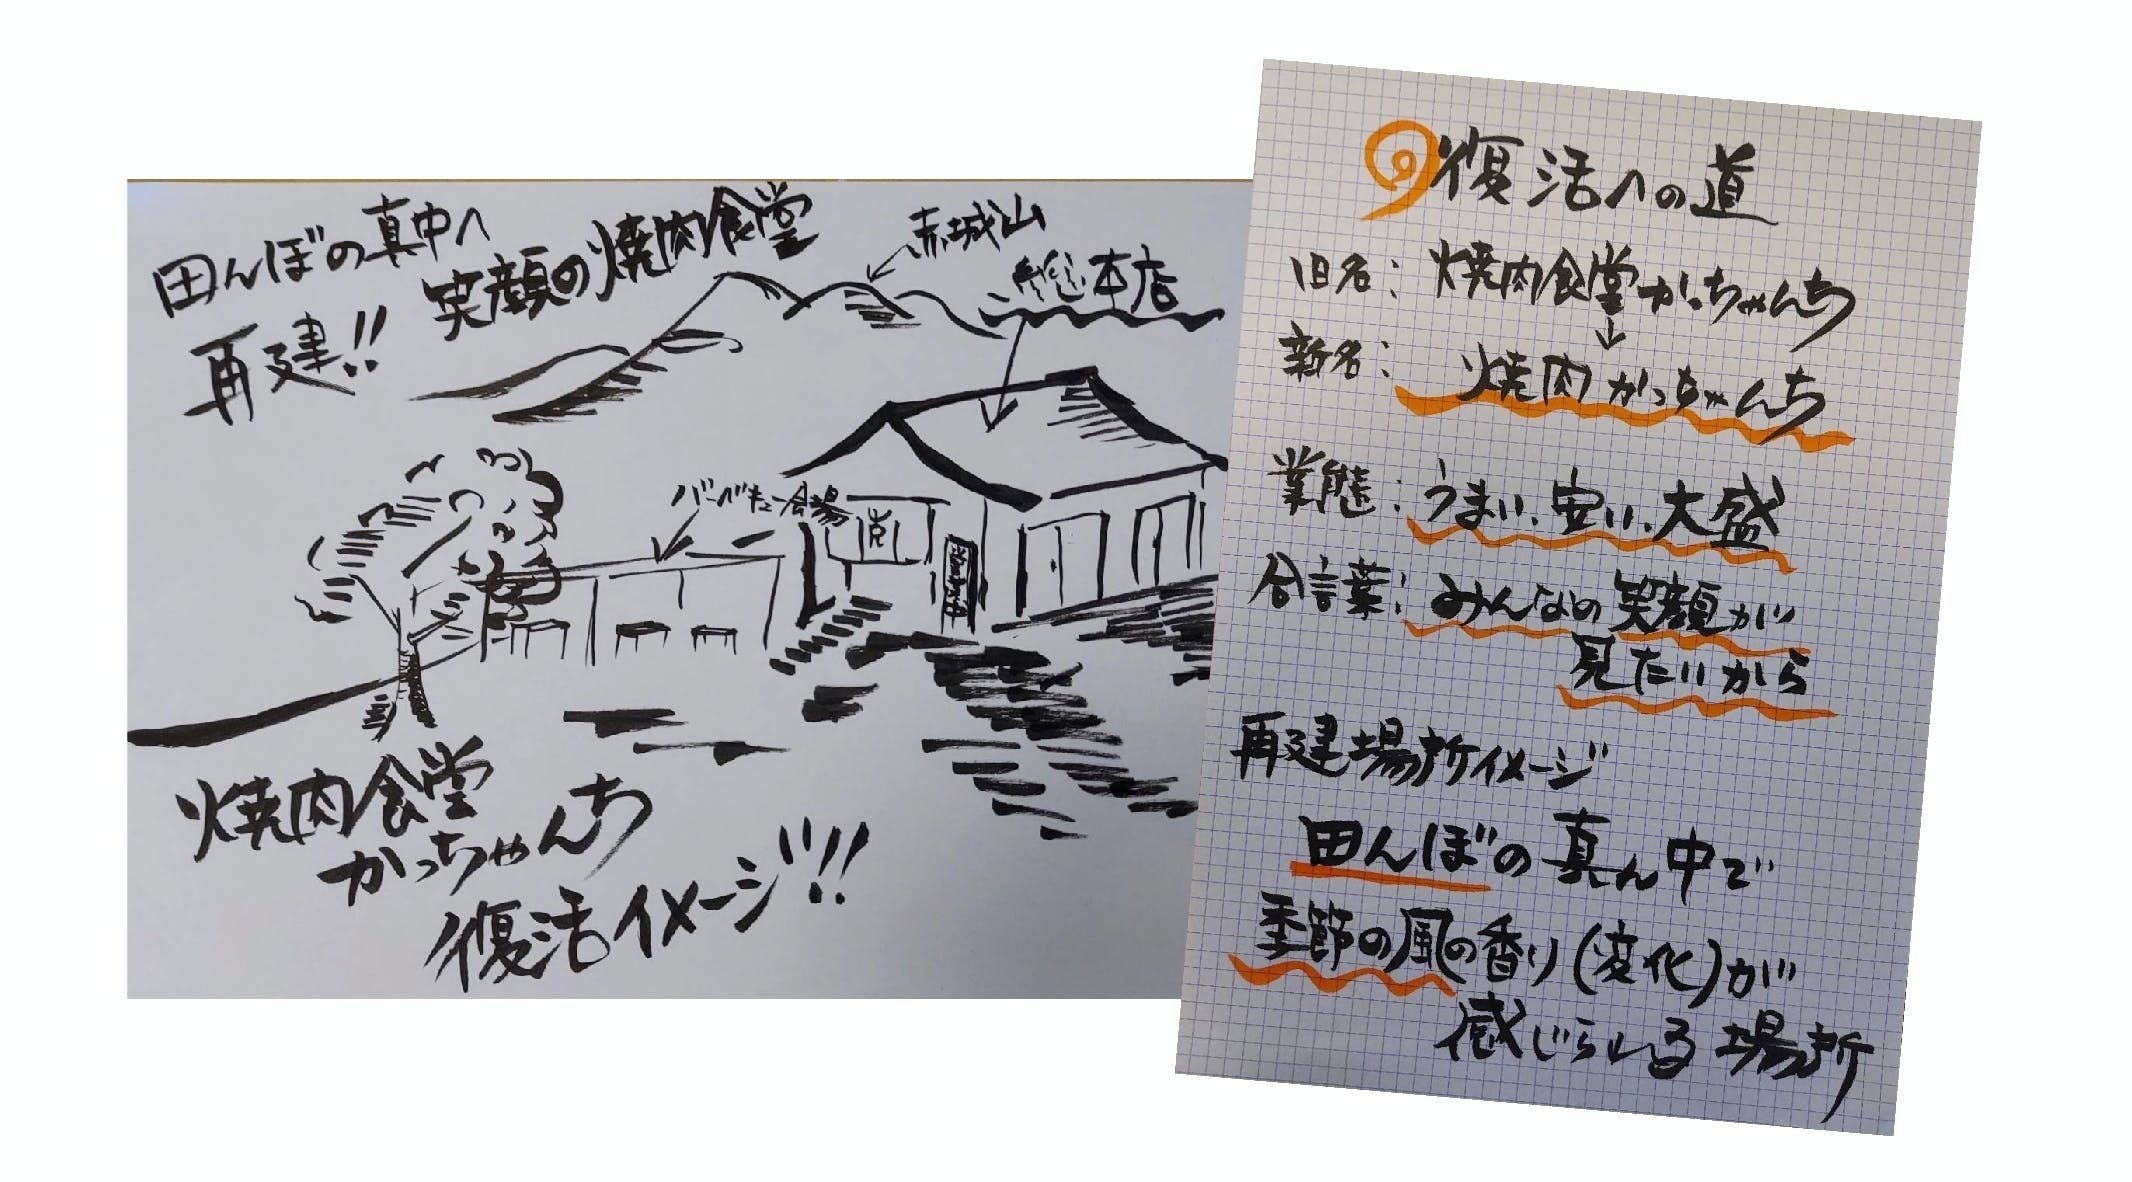 田んぼの真中へ
再建!!
笑顔の焼肉食堂
赤城山
総本店
バーベキュー会場
焼肉食堂
かっちゃんち
復活イメージ!!
復活への道
旧名：焼肉食堂かっちゃんち
↓
新名：焼肉かっちゃんち
業態：うまい、安い、大盛
合言葉：みんなの笑顔が
見たいから
再建場所イメージ
田んぼの真ん中で
季節の風の香り(変化)が
感じられる場所